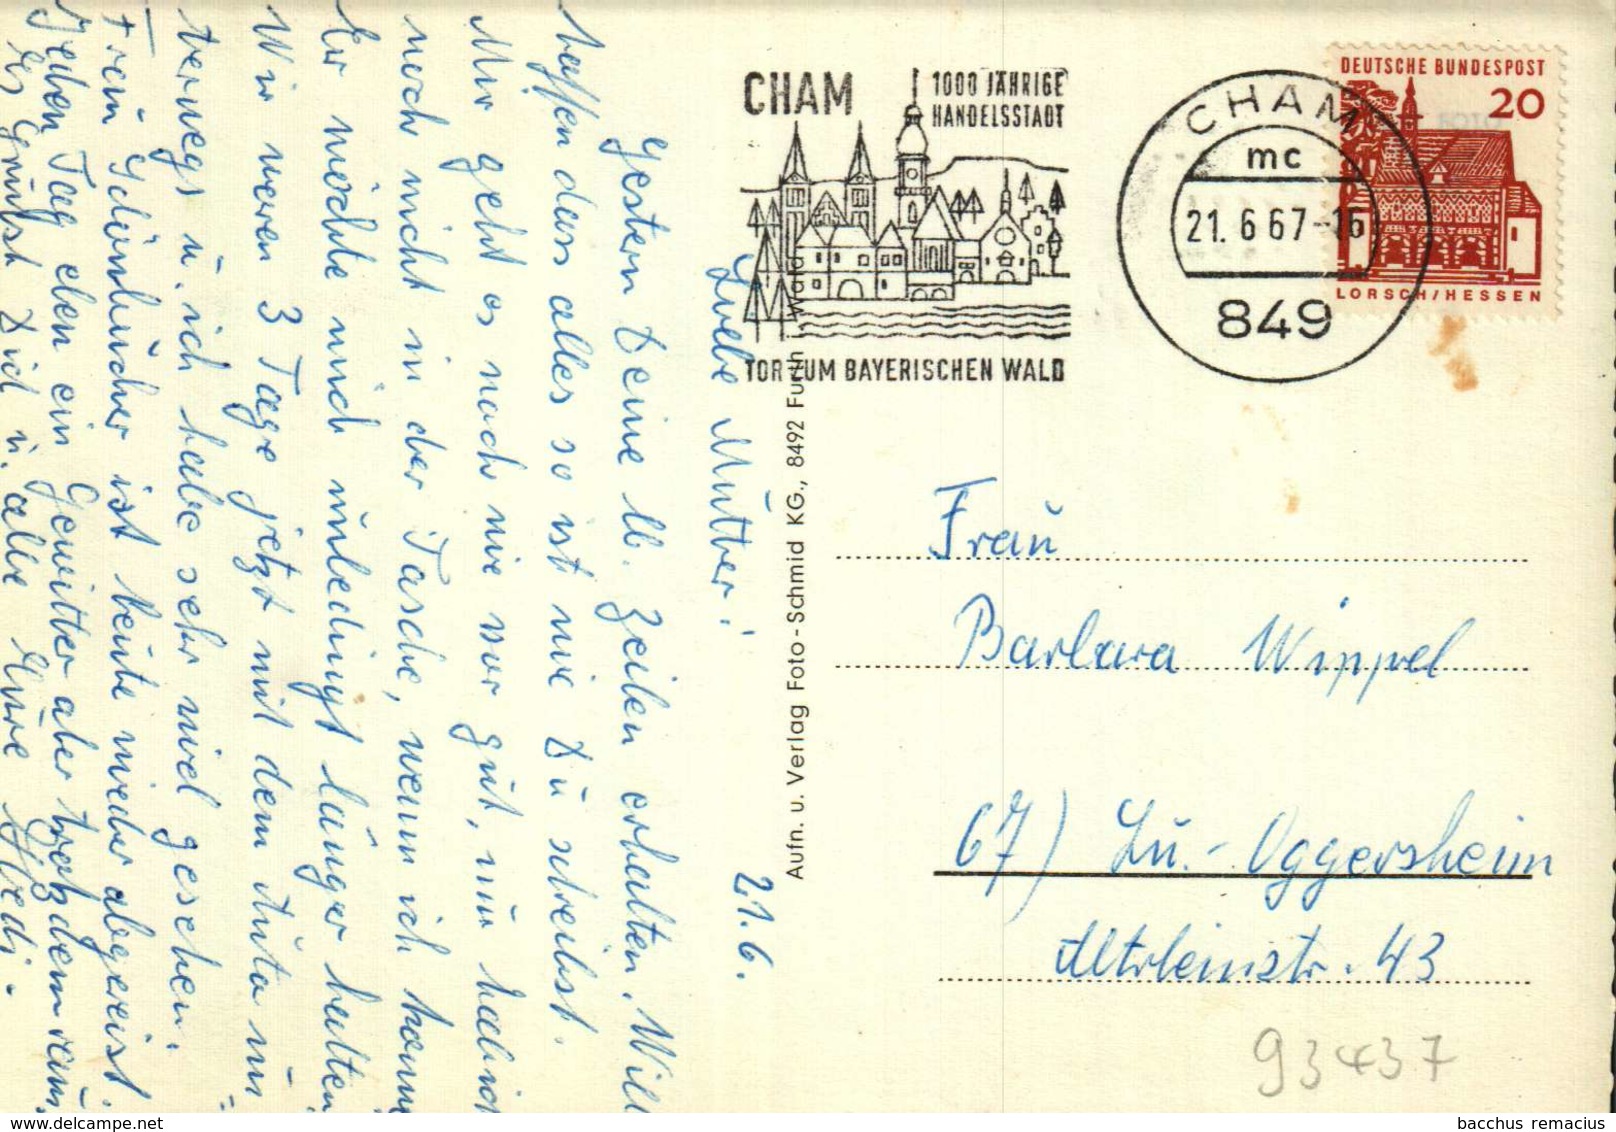 CHAM
1000 JÄHRIGE
HANDELSSTADT
TOR ZUM BAYERISCHEN WALD
CHAM
mc
21. 6 67--16
849
DEUTSCHE BUNDESPOST
20
LORSCH/HESSEN
21.6.
Liebe Mutter!
Gestern Deine lb. Zeilen erhalten. Will
hoffen dass alles so ist wie Du schreibst.
Mir geht es nach wie vor gut, nur hab ich
noch nicht in der Tasche, wenn ich komm
Er möchte mich unbedingt länger halten
Wir waren 3 Tage jetzt mit dem Auto un=
terwegs u. ich habe sehr viel gesehen.
Frau Schönhuber ist heute wieder abgereist.
Jeden Tag eben ein Gewitter aber trotzdem warm.
Es grüsst Dich u. alle Eure Hedi.
Aufn. u. Verlag Foto-Schmid KG., 8492 Furth i. Wald
Frau
Barbara Wippel
67) Lu.- Oggersheim
43
93437
bacchus remacius